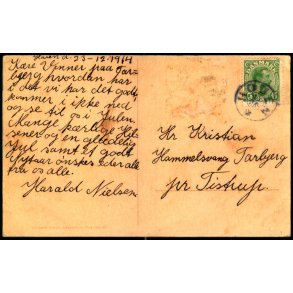 d. 23-12-1914
Kære Venner paa Tar-
bjerg hvordan har
i det vi har det godt
kommer i ikke ned
og se til os i Julen
Mange kærlige Hil-
sener og en glædelig
Jul samt et godt
Nytaar ønskes eder alle
fra os alle.
Harald Nielsen
DANMARK
Hr Kristian
Hammelsvang Tarbjerg
pr Tistrup.